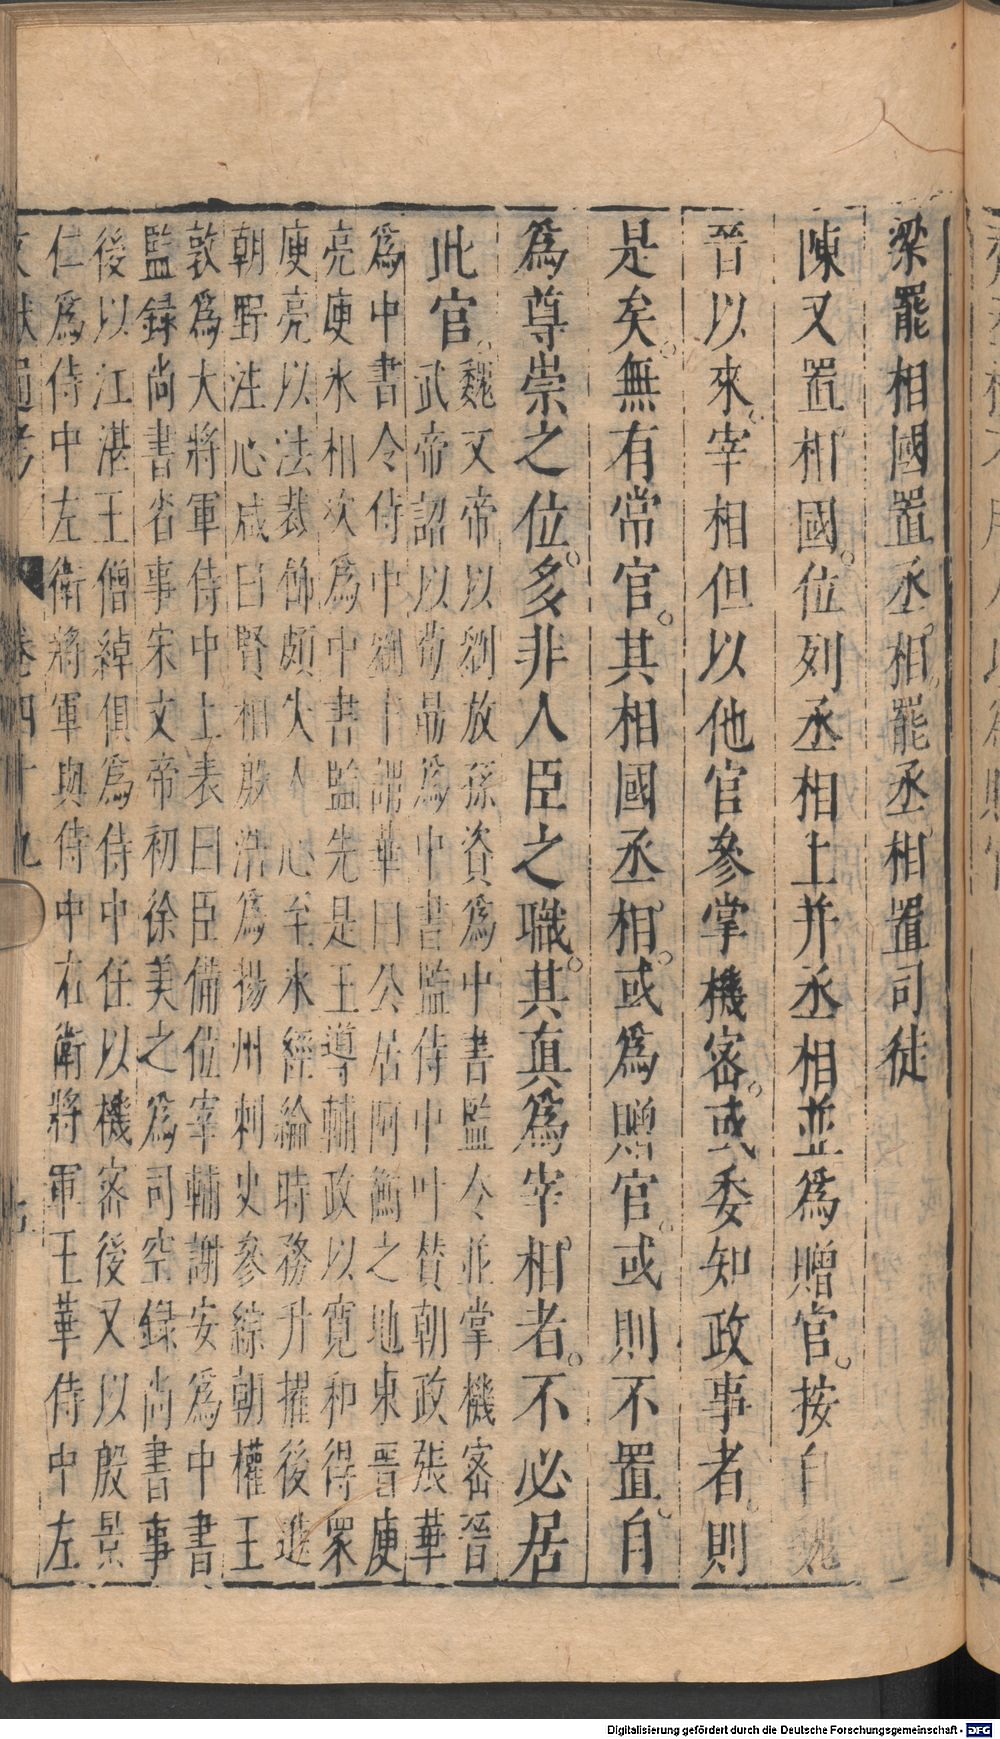 梁罷相國置丞相罷丞相置司徒
陳又置相國。位列丞相上并丞相並爲贈官。按自魏
晉以來。宰相但以他官參掌機密。或委知政事者。則
是矣。無有常官。其相國丞相。或爲贈官。或則不置。自
爲尊崇之位。多非人臣之職。其真爲宰相者。不必居
此官。魏文帝以劉放孫資爲中書監令並掌機密晉
武帝詔以荀勗爲中書監侍中叶賛朝政張華
爲中書令侍中劉卞謂華曰公居阿衡之地東晉庾
亮庾氷相次爲中書監先是王導輔政以寛和得衆
庾亮以法裁飾頗失人心至氷經綸時務升擢後進
朝野注心咸曰賢相殷浩爲揚州刺史參綜朝權王
敦爲大將軍侍中上表曰臣備位宰輔謝安爲中書
監録尚書省事宋文帝初徐美之爲司空録尚書事
後以江湛王僧綽俱爲侍中任以機密後又以殷景
仁爲侍中左衛將軍與侍中右衛將軍王華侍中左
文獻通考 卷四十九
Digitalisierung gefördert durch die Deutsche Forschungsgemeinschaft - DFG